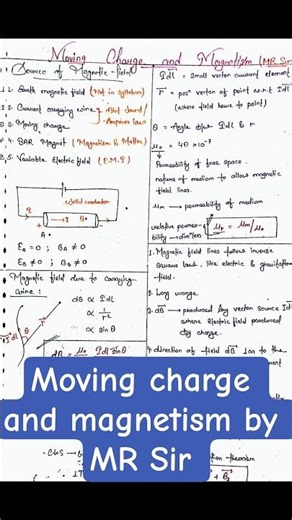 Moving Charge and Magnetism (MR Sir)
Source of Magnetic field
1. Earth magnetic field (Not in syllabus)
2. Current carrying wire
Biot Savart / Amperes law
3. Moving charge
4. BAR Magnet (Magnetism & Matter)
5. Variable Electric field (E.M.I)
solid conductor
I
B•
A •
E_A = 0 ; B_A ≠ 0
E_B ≠ 0 ; B_B ≠ 0
Magnetic field due to carrying
wire :
dB ∝ Idl
∝ 1/r²
∝ sinθ
dB = μ₀ Idl sinθ
Idl = Small vector current element
r = posⁿ vector of point w.r.t Idl
(where field have to point)
θ = Angle b/w Idl & r
μ₀ = 4π × 10⁻⁷
Permeability of free space.
nature of medium to allow magnetic
field lines.
μm → permeability of medium
relative permea-
bility → dim'less
μr = μm/μ₀
1. Magnetic field lines follows inverse
square law, like electric & gravitation
field.
2. Long range
3. dB → produced by vector source Idl
where Electric field produced
by charge.
4. direction of field dB
Moving charge
and magnetism by
MR Sir
theorem